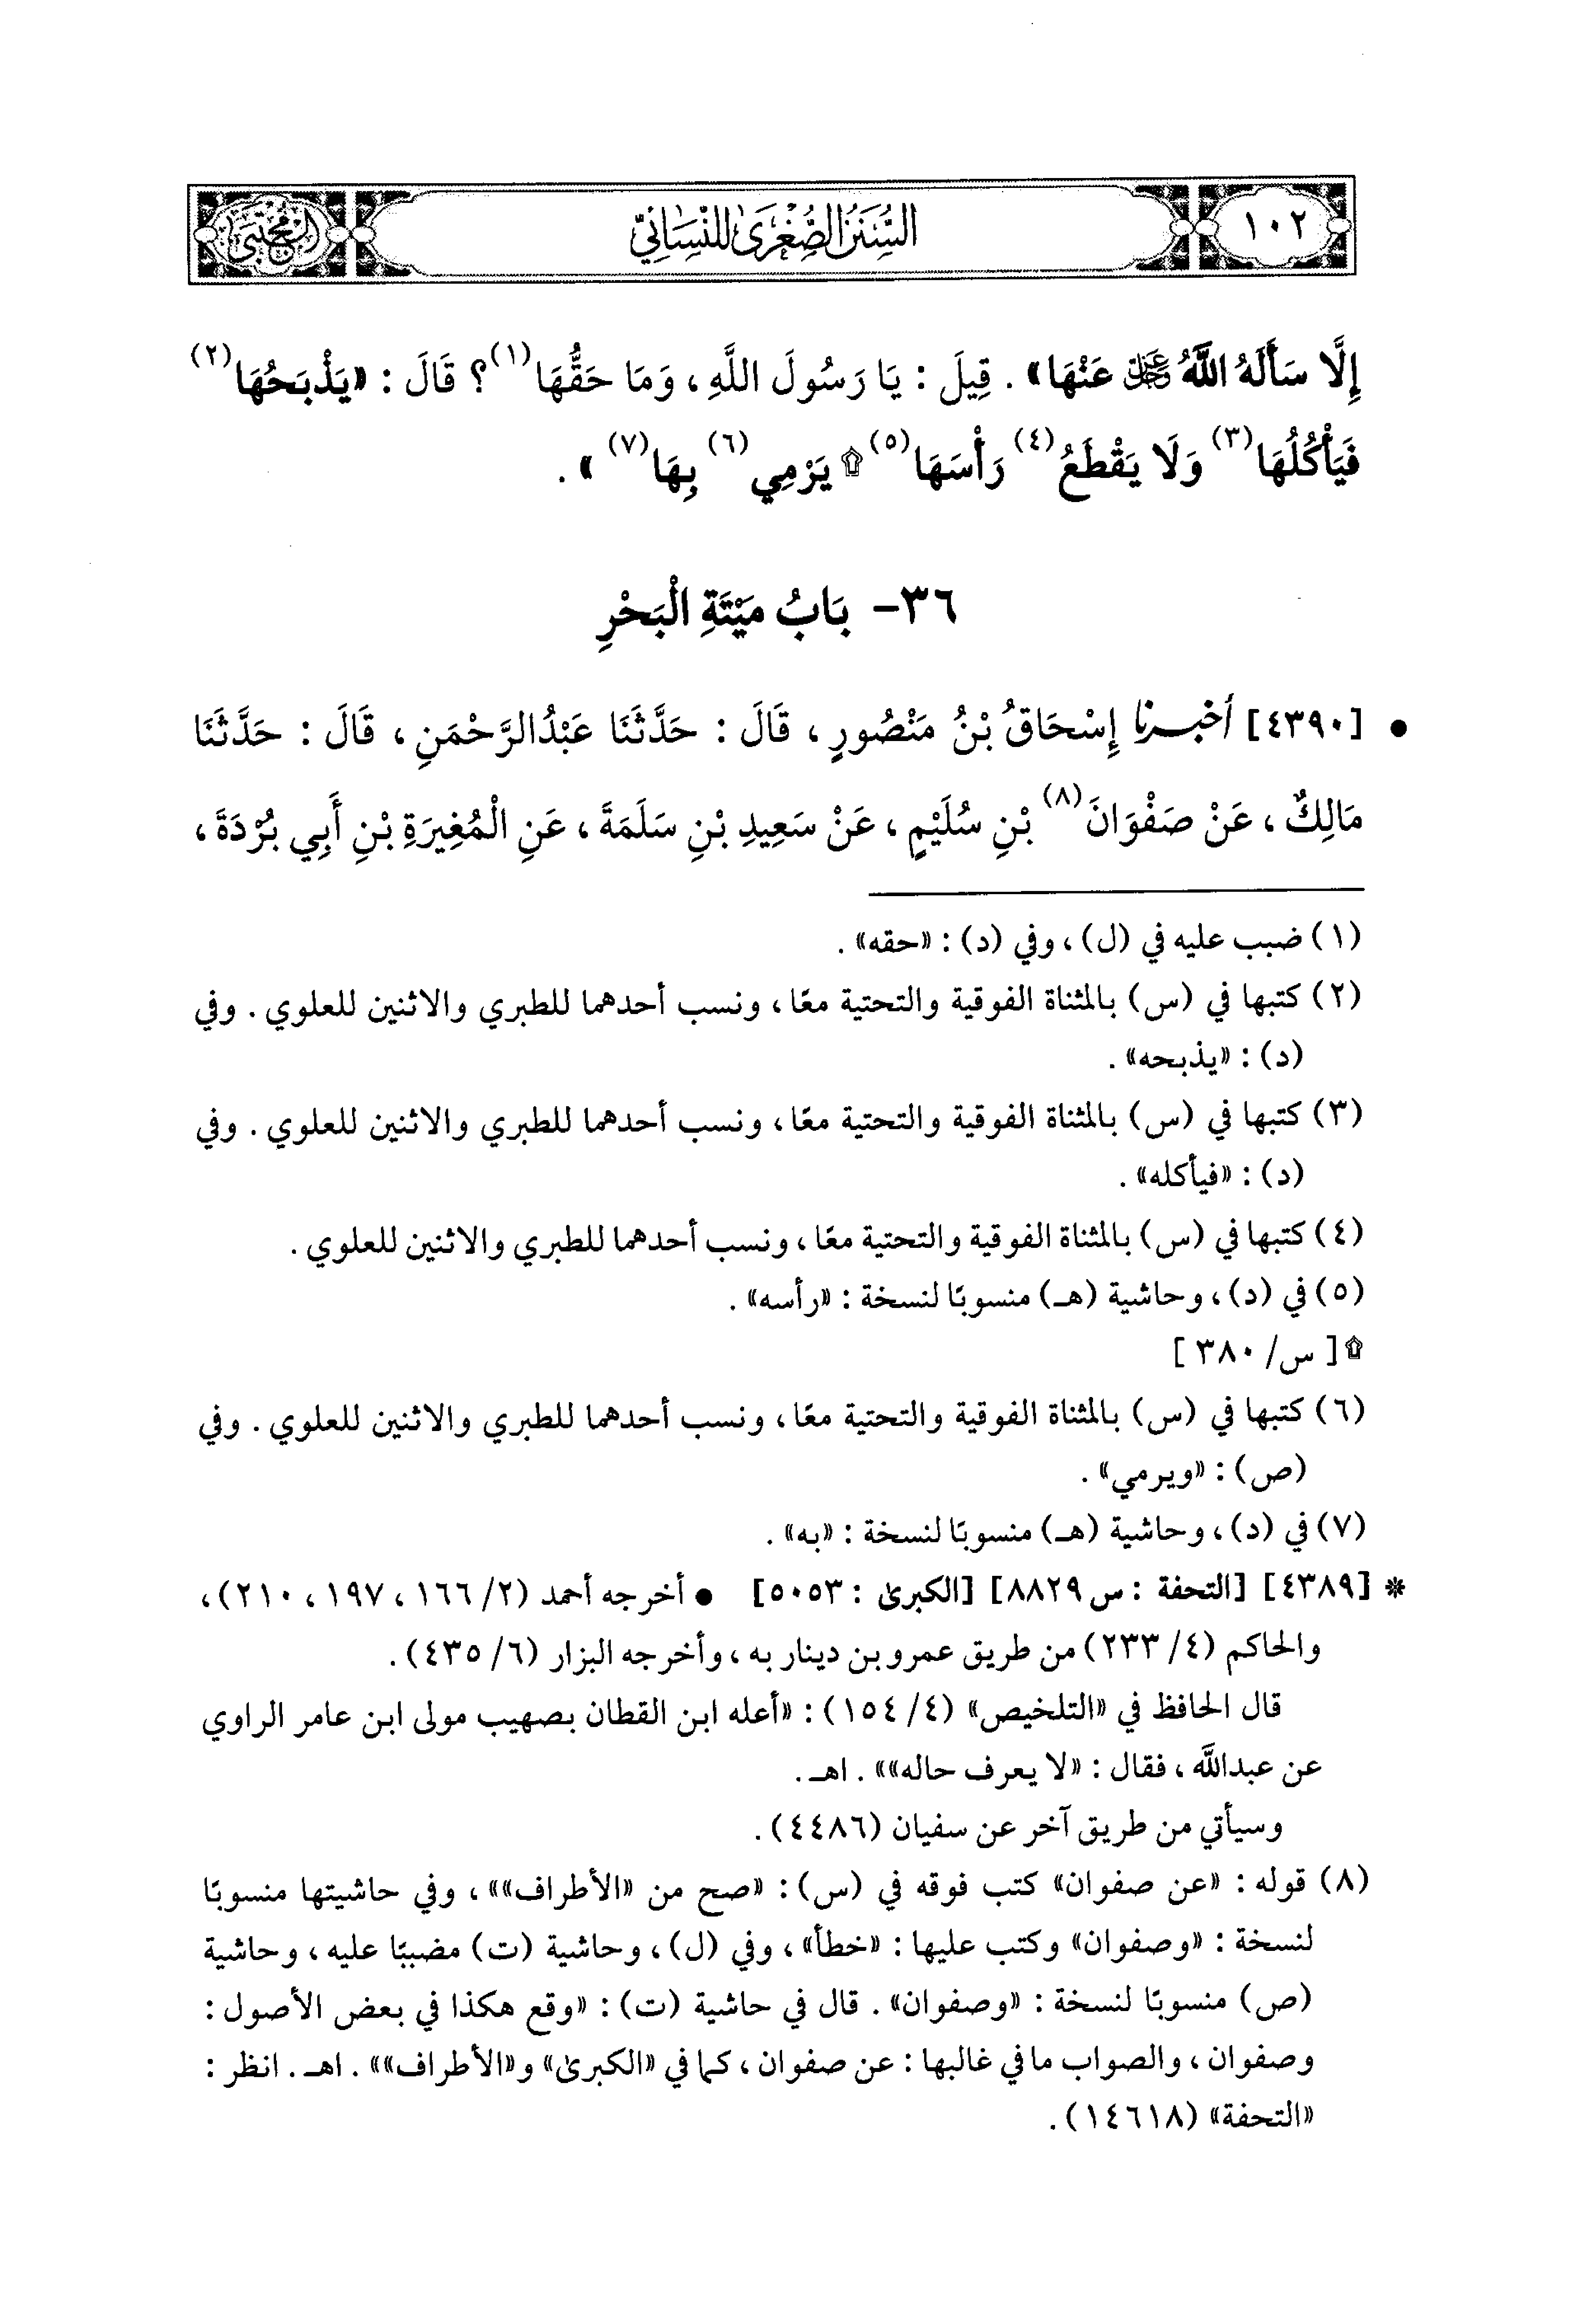 ١٠٢
السُّنَنُ الصُّغْرَىٰ لِلنَّسَائِيِّ
المجتبى
إِلَّا سَأَلَهُ اللَّهُ ﷿ عَنْهَا» . قِيلَ : يَا رَسُولَ اللَّهِ ، وَمَا حَقُّهَا(١)؟ قَالَ : «يَذْبَحُهَا(٢)
فَيَأْكُلُهَا(٣) وَلَا يَقْطَعُ(٤) رَأْسَهَا(٥) ۩ يَرْمِي(٦) بِهَا(٧) » .
٣٦- بَابُ مَيْتَةِ الْبَحْرِ
• [٤٣٩٠] أخبرنا إِسْحَاقُ بْنُ مَنْصُورٍ ، قَالَ : حَدَّثَنَا عَبْدُالرَّحْمَنِ ، قَالَ : حَدَّثَنَا
مَالِكٌ ، عَنْ صَفْوَانَ(٨) بْنِ سُلَيْمٍ ، عَنْ سَعِيدِ بْنِ سَلَمَةَ ، عَنِ الْمُغِيرَةِ بْنِ أَبِي بُرْدَةَ ،
(١) ضبب عليه في (ل) ، وفي (د) : «حقه» .
(٢) كتبها في (س) بالمثناة الفوقية والتحتية معًا ، ونسب أحدهما للطبري والاثنين للعلوي . وفي
(د) : «يذبحه» .
(٣) كتبها في (س) بالمثناة الفوقية والتحتية معًا ، ونسب أحدهما للطبري والاثنين للعلوي . وفي
(د) : «فيأكله» .
(٤) كتبها في (س) بالمثناة الفوقية والتحتية معًا ، ونسب أحدهما للطبري والاثنين للعلوي .
(٥) في (د) ، وحاشية (هـ) منسوبًا لنسخة : «رأسه» .
۩ [ س/ ٣٨٠ ]
(٦) كتبها في (س) بالمثناة الفوقية والتحتية معًا ، ونسب أحدهما للطبري والاثنين للعلوي . وفي
(ص) : «ويرمي» .
(٧) في (د) ، وحاشية (هـ) منسوبًا لنسخة : «به» .
* [٤٣٨٩] [التحفة : س ٨٨٢٩] [الكبرىٰ : ٥٠٥٣] • أخرجه أحمد (٢/ ١٦٦ ، ١٩٧ ، ٢١٠) ،
والحاكم (٤/ ٢٣٣) من طريق عمرو بن دينار به ، وأخرجه البزار (٦/ ٤٣٥) .
قال الحافظ في «التلخيص» (٤/ ١٥٤) : «أعله ابن القطان بصهيب مولى ابن عامر الراوي
عن عبدالله ، فقال : «لا يعرف حاله»» . اهـ .
وسيأتي من طريق آخر عن سفيان (٤٤٨٦) .
(٨) قوله : «عن صفوان» كتب فوقه في (س) : «صح من «الأطراف»» ، وفي حاشيتها منسوبًا
لنسخة : «وصفوان» وكتب عليها : «خطأ» ، وفي (ل) ، وحاشية (ت) مضببًا عليه ، وحاشية
(ص) منسوبًا لنسخة : «وصفوان» . قال في حاشية (ت) : «وقع هكذا في بعض الأصول :
وصفوان ، والصواب ما في غالبها : عن صفوان ، كما في «الكبرىٰ» و«الأطراف»» . اهـ . انظر :
«التحفة» (١٤٦١٨) .